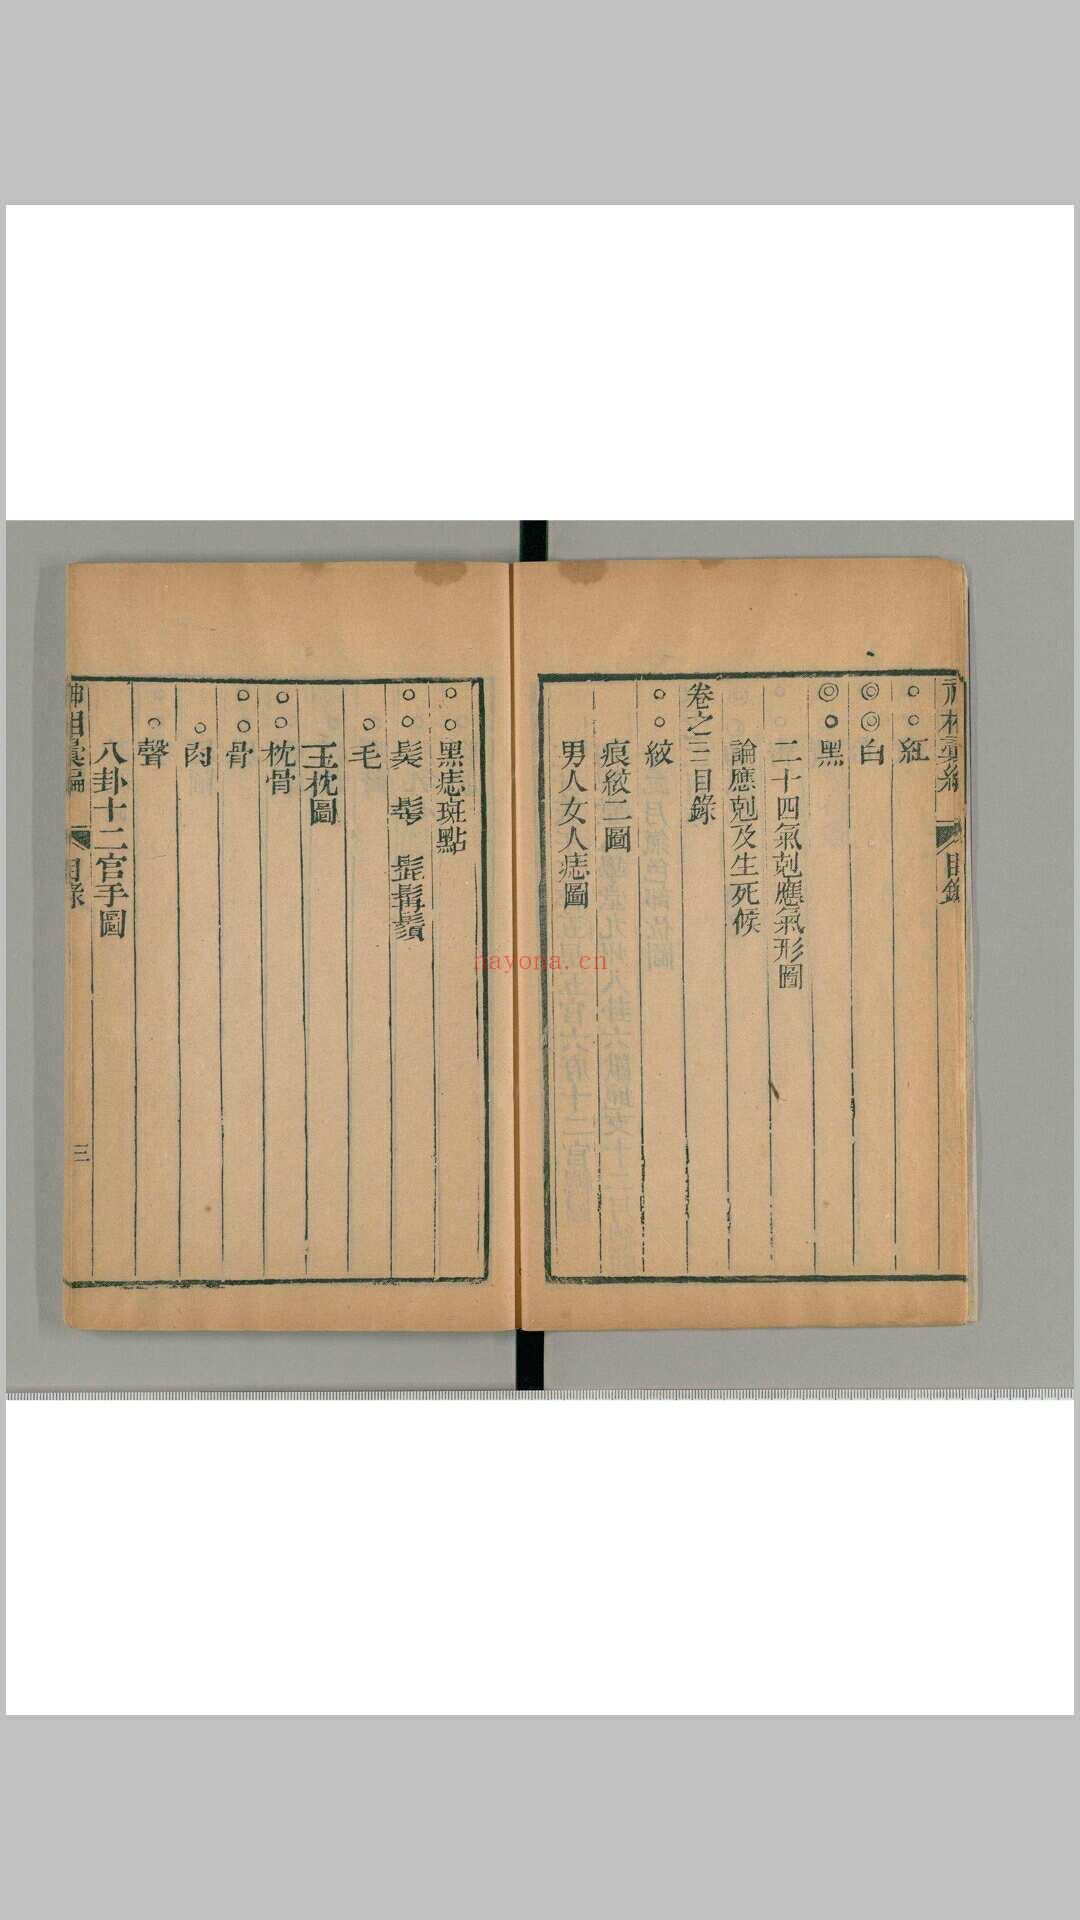 神相彙編 目錄
◦◦紅
◎◎白
◎◦黑
二十四氣剋應氣形圖
論應剋及生死候
卷之三目錄
◦◦紋
痕紋二圖
男人女人痣圖
◦◦黑痣斑點
◦◦髮 髩 髭髯鬚
◦毛
玉枕圖
◦◦枕骨
◦◦骨
◦肉
◦聲
八卦十二宮手圖
神相彙編 目錄 三
nayona.cn